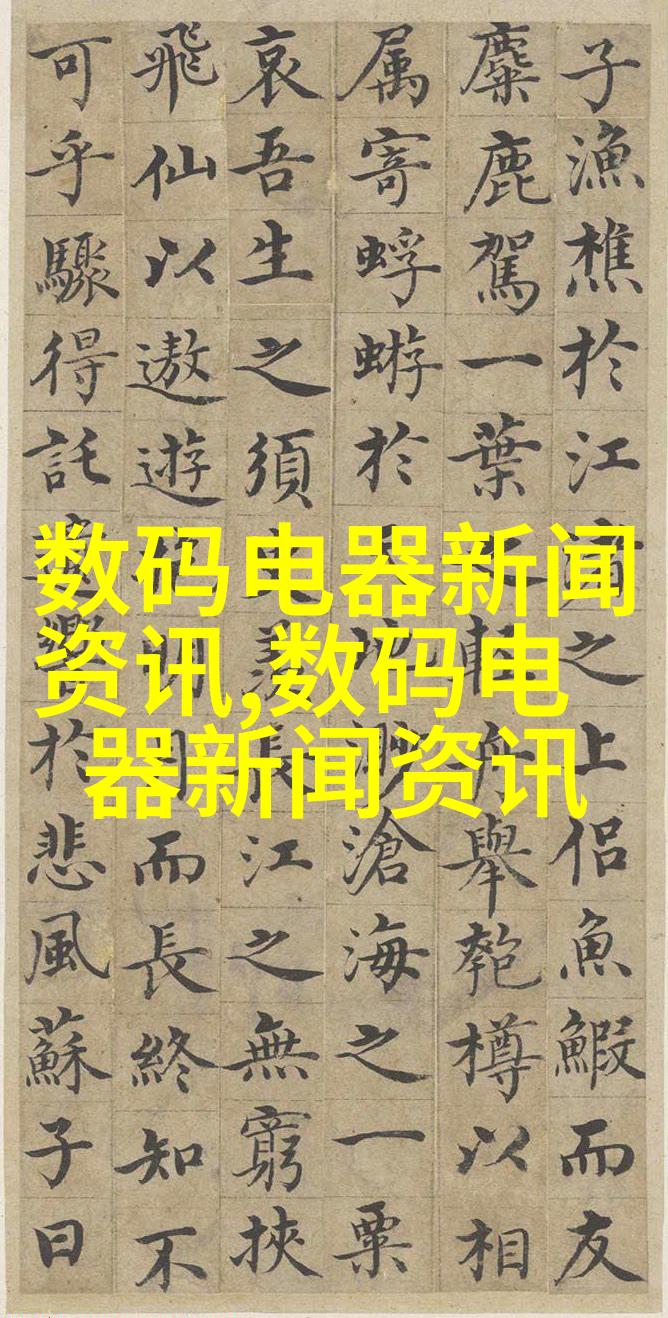 子漁樵於江渚之上侶魚鰕而友
麋鹿駕一葉之輕舟舉匏樽以相
属寄蜉蝣於天地渺滄海之一粟
哀吾生之須臾羨長江之無窮挾
飛仙以遨遊抱明月而長終知不
可乎驟得託遺響於悲風蘇子曰
数码电器新闻
资讯,数码电
器新闻资讯